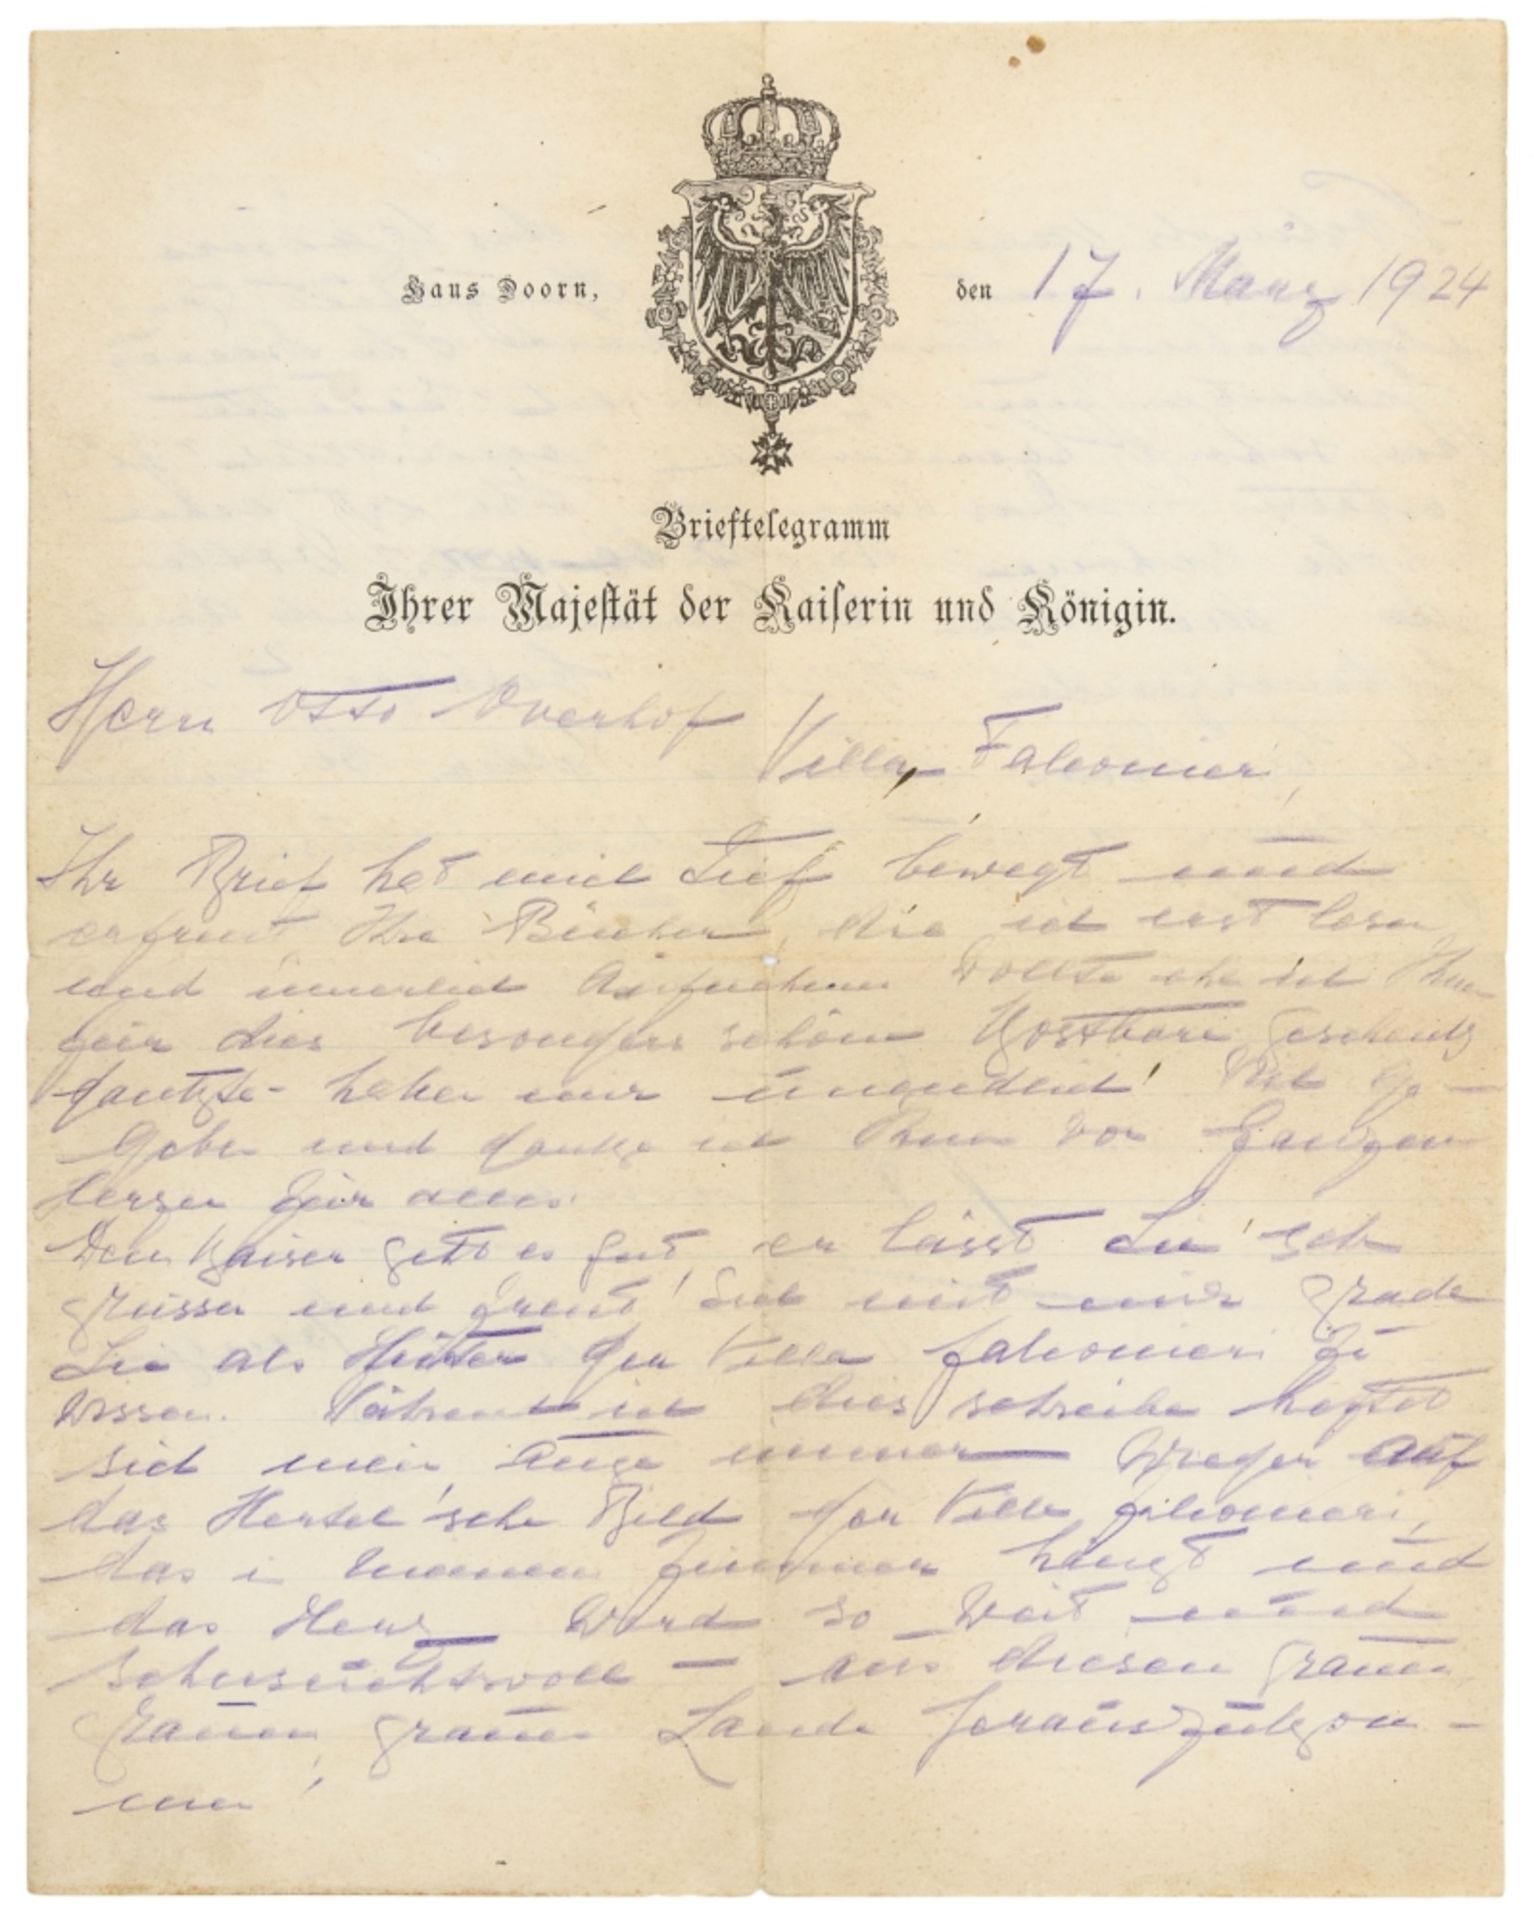 Haus Doorn,
den 17. März 1924
Brieftelegramm
Ihrer Majestät der Kaiserin und Königin.
Herrn Otto Overhof
Villa Falconieri,
Ihr Brief hat mich tief bewegt und
erfreut, Ihre Bücher, die ich erst lesen
und innerlich aufnehmen wollte ehe ich Ihnen
für dies besonders schöne kostbare Geschenk
dankte - haben mir unendlich viel ge-
geben und danke ich Ihnen von ganzen
Herzen für alles.
Dem Kaiser geht es gut, er lässt Sie sehr
grüssen und freut sich mit mir grade
Sie als Hüter der Villa Falconieri zu
wissen. Während ich dies schreibe heftet
sich mein Auge immer — wieder auf
das Hertel'sche Bild der Villa Falconieri,
das in meinem Zimmer hängt und
das Herz wird so weit und
sehnsuchtsvoll — aus diesem grauen,
grauen, grauen Lande herauszukom-
men!